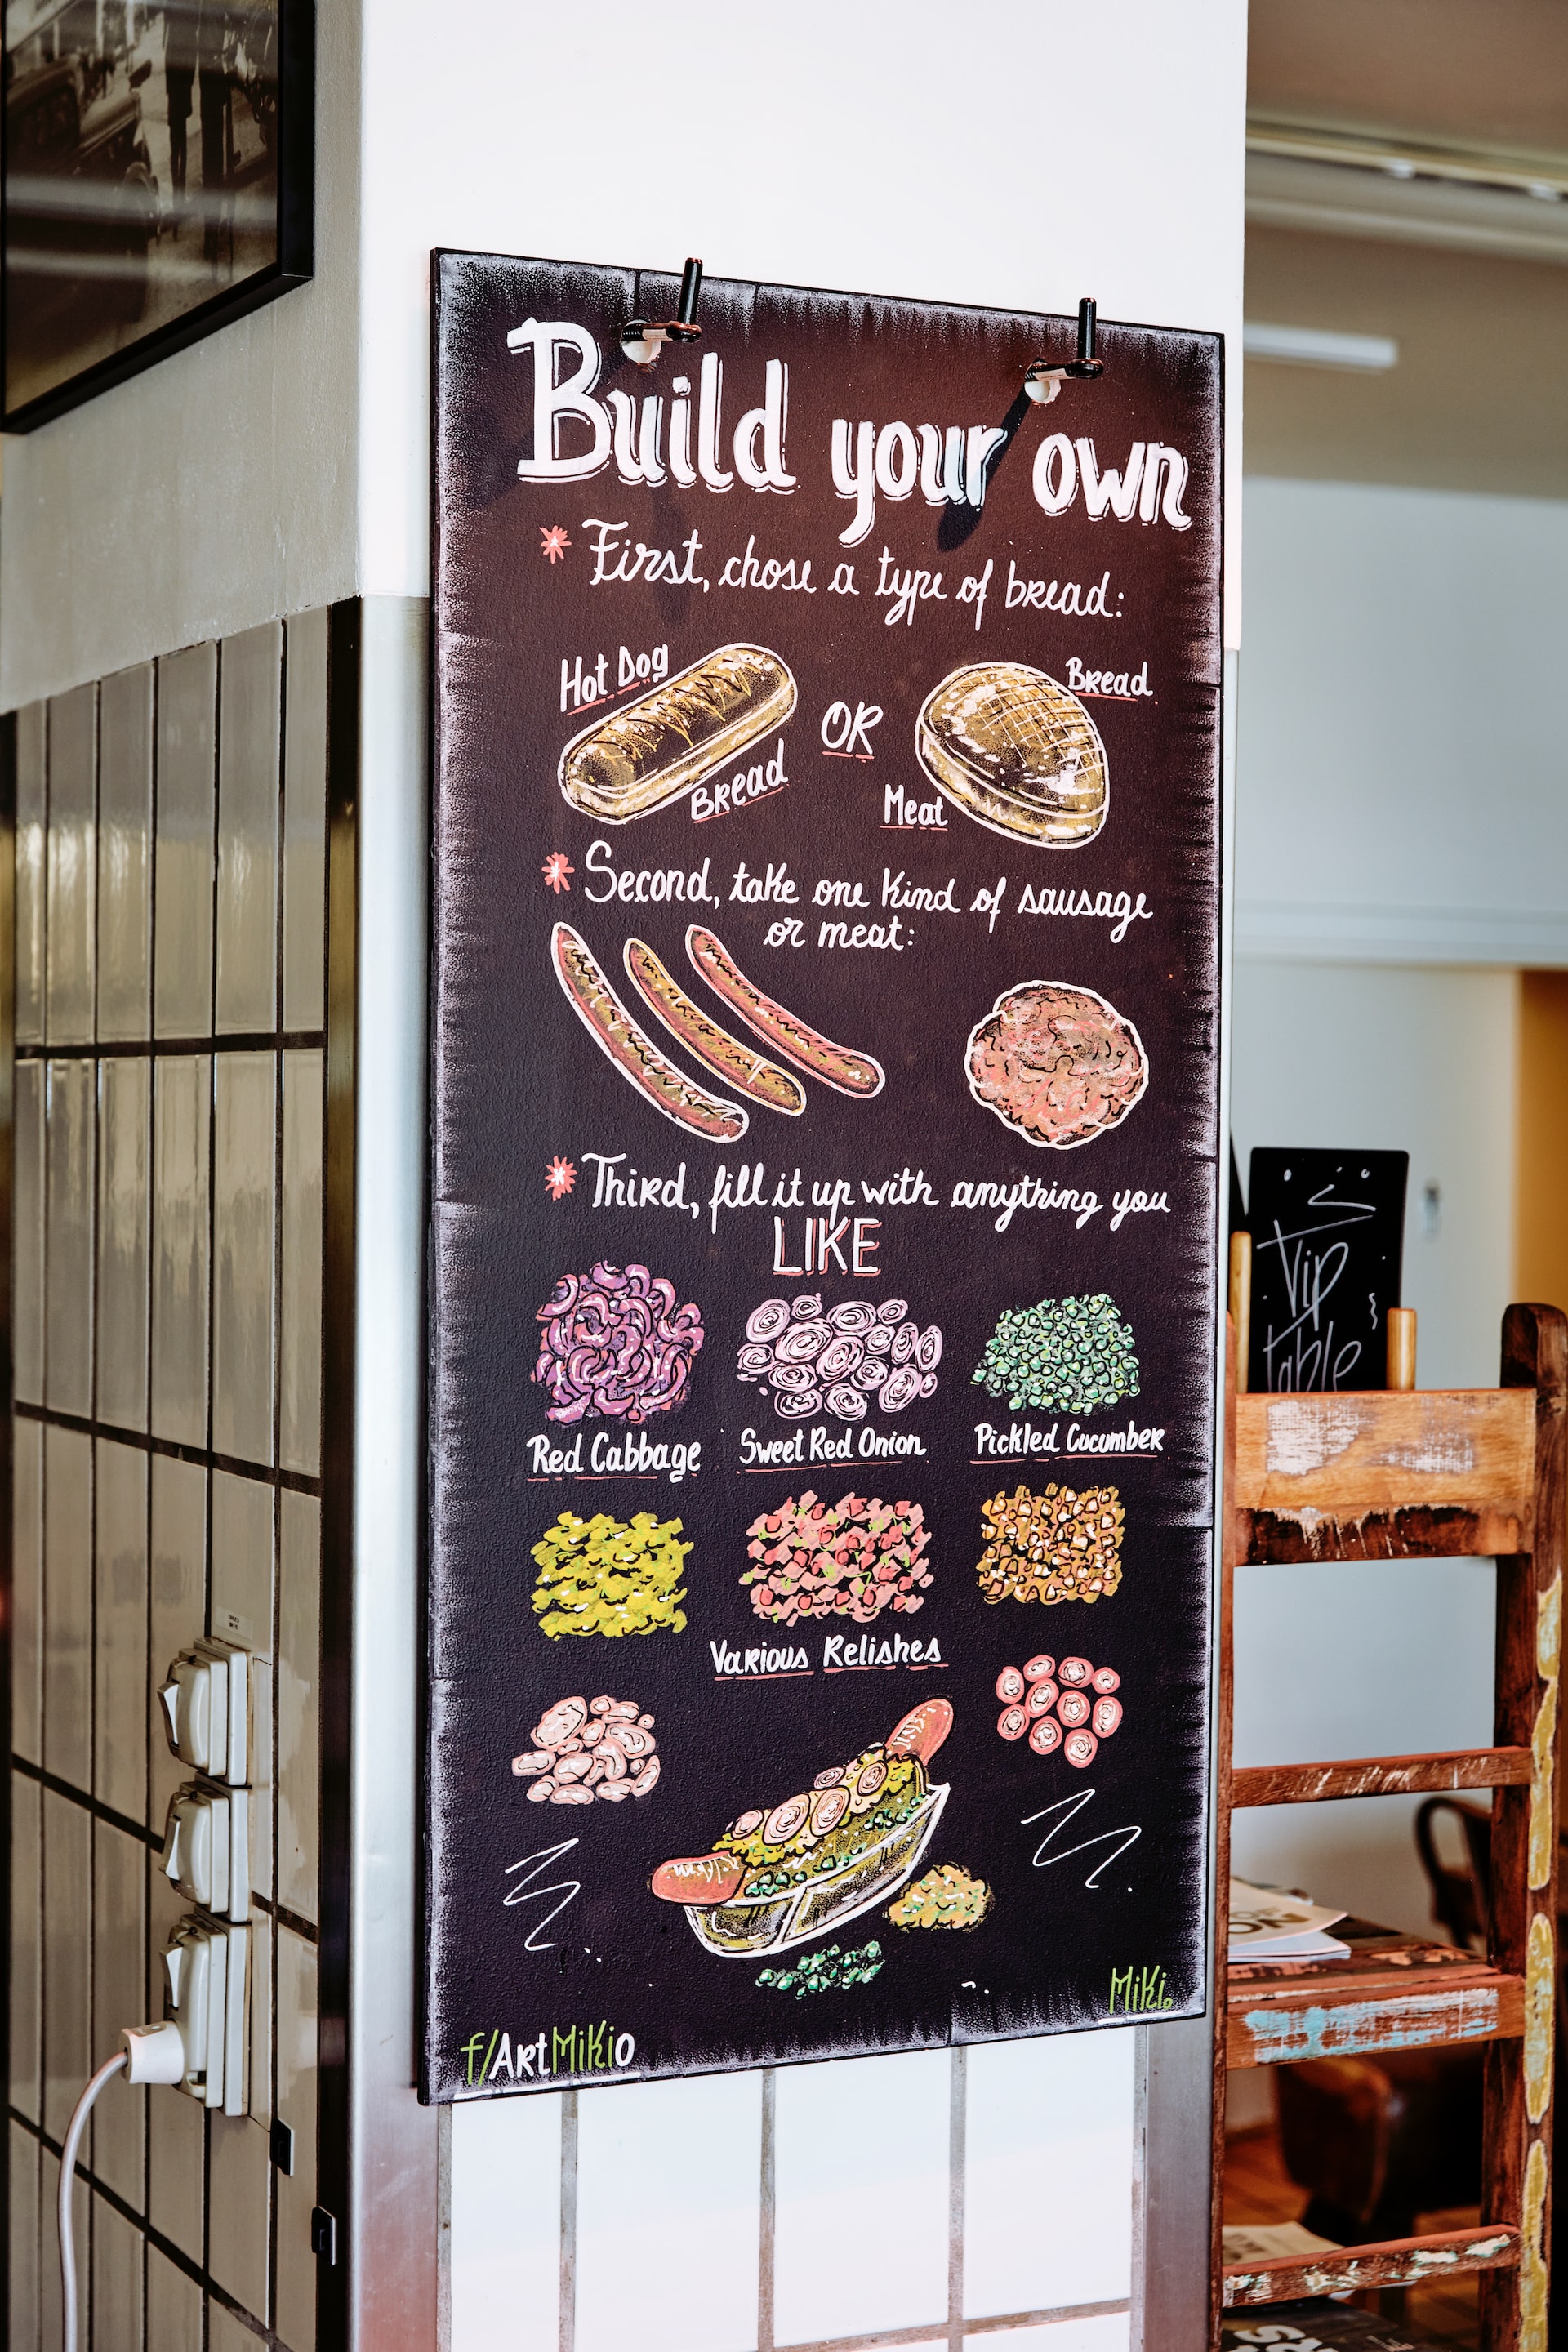 Build your own
* First, chose a type of bread:
Hot Dog
Bread
OR
Bread
Meat
* Second, take one kind of sausage
or meat:
* Third, fill it up with anything you
LIKE
Red Cabbage
Sweet Red Onion
Pickled Cucumber
Various Relishes
Miki
f/ArtMikio
Vip
table